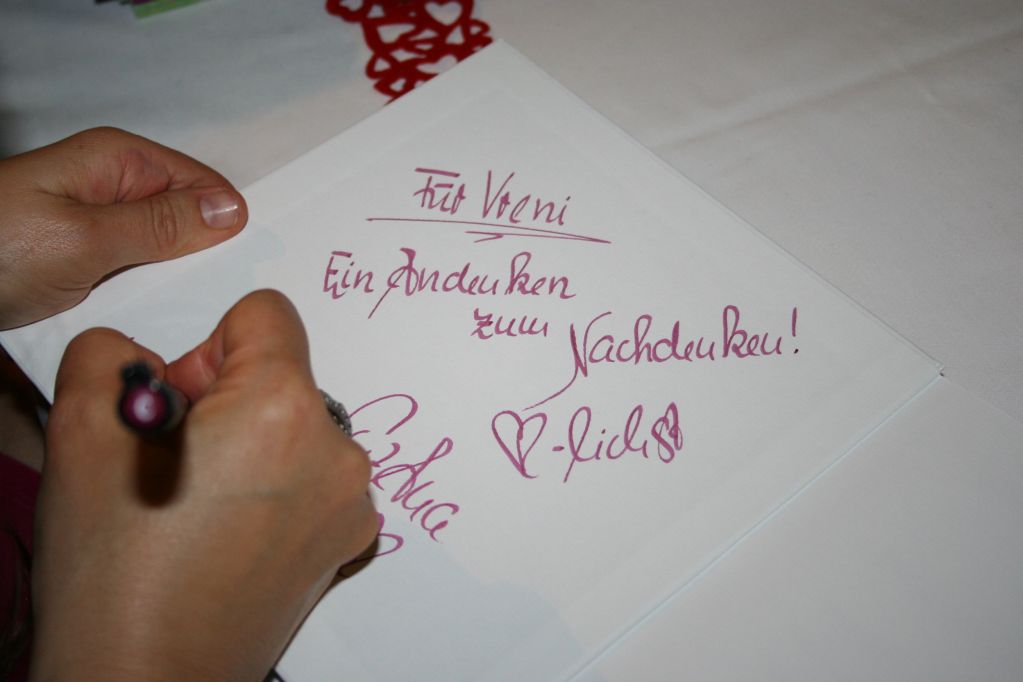 Für Vreni
Ein Andenken
zum
Nachdenken!
♡-lichst